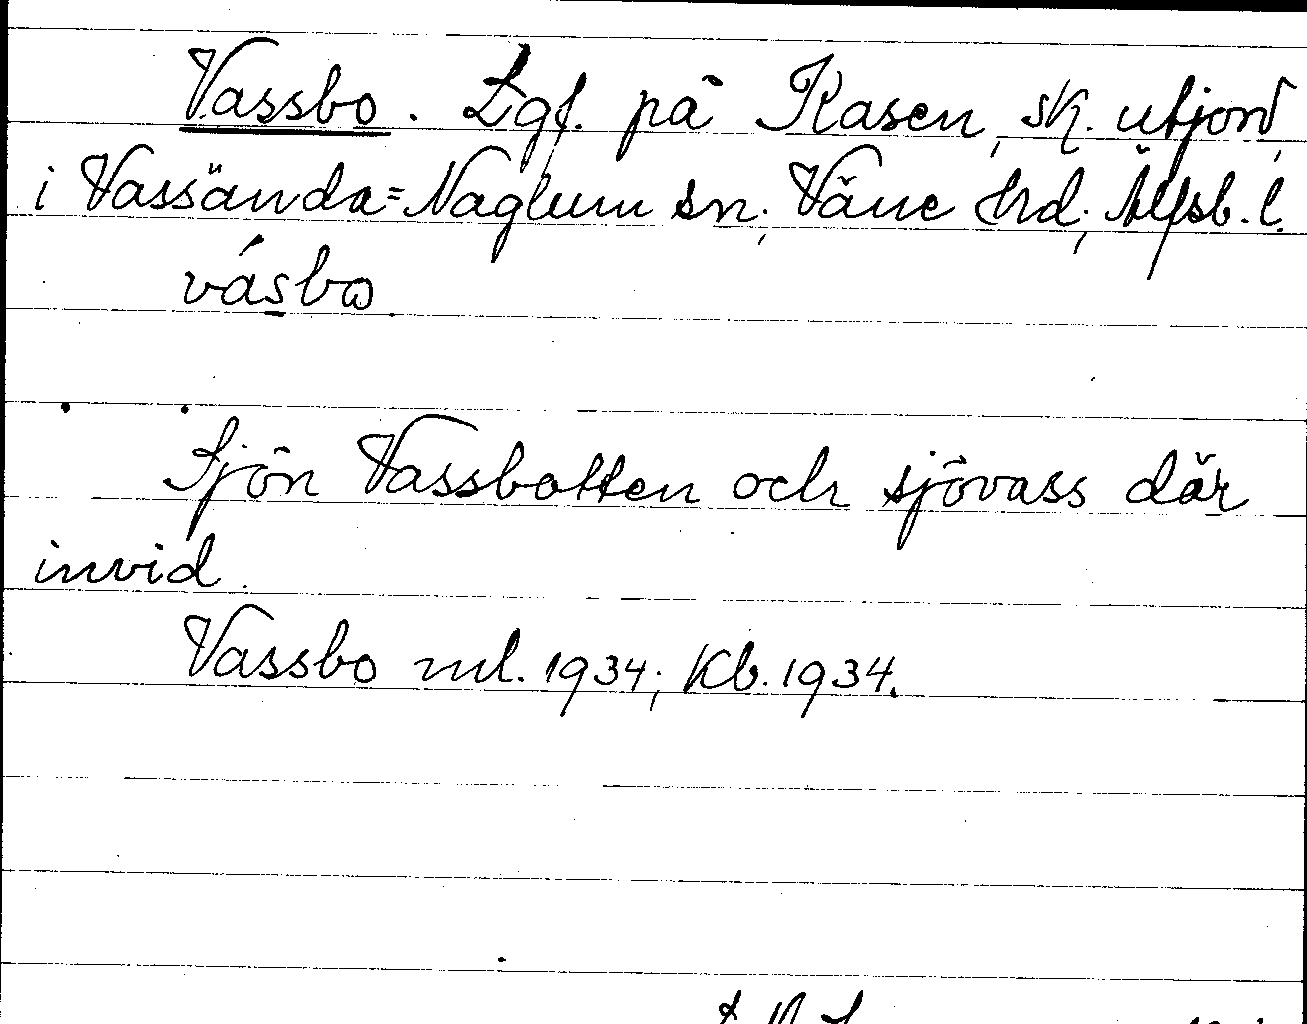 Vassbo. Lgf. på Kasen, sk. utjord,
i Vassända=Naglum sn; Väne hd; Älfsb. l.
vásbo.
Sjön Vassbotten och sjövass där
invid.
Vassbo ml. 1934; Kb. 1934.